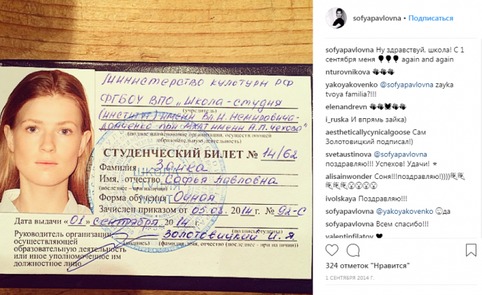 Министерство культуры РФ
ФГБОУ ВПО „Школа-студия
(учредитель)
(институт) имени Вл. И. Немировича-
Данченко при МХАТ имени А.П. Чехова"
СТУДЕНЧЕСКИЙ БИЛЕТ № 14/62
Фамилия Заика
Имя, отчество Софья Павловна
Форма обучения Очная
Зачислен приказом от 05.08.2014 г. № 92-С
Дата выдачи «01» сентября 2014 г.
Руководитель организации,
осуществляющей
образовательную деятельность
или иное уполномоченное им
должностное лицо
Золотовицкий И. Я.
sofyapavlovna • Подписаться
sofyapavlovna Ну здравствуй, школа! С 1
сентября меня 🎈🎈🎈 again and again
nturovnikova
yakoyakovenko @sofyapavlovna zayka
tvoya familia?!!!
elenandrevn
i_ruska И впрямь зайка)
aestheticallycynicalgoose Сам
Золотовицкий подписал)
svetaustinova @sofyapavlovna
поздравляю!!! Успехов! Удачи!
alisainwonder Соня!!!поздравляю))))))
ivolskaya Поздравляю!!!
sofyapavlovna @yakoyakovenko да
sofyapavlovna Всем спасибо!!!
valentinfilatov
324 отметок "Нравится"
1 СЕНТЯБРЯ 2014 Г.